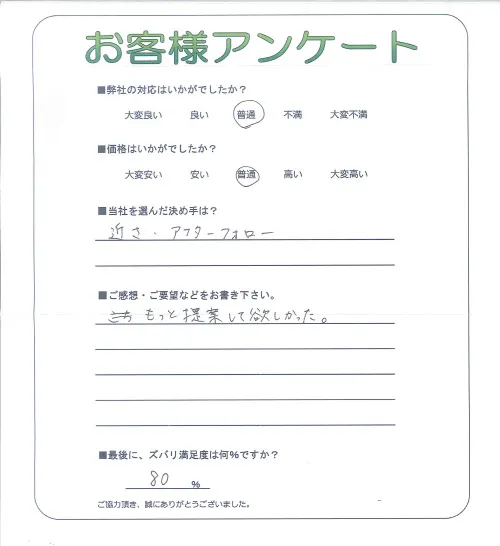 お客様アンケート
■弊社の対応はいかがでしたか?
大変良い 良い 普通 不満 大変不満
■価格はいかがでしたか?
大変安い 安い 普通 高い 大変高い
■当社を選んだ決め手は?
近さ・アフターフォロー
■ご感想・ご要望などをお書き下さい。
もっと提案して欲しかった。
■最後に、ズバリ満足度は何%ですか?
80 %
ご協力頂き、誠にありがとうございました。